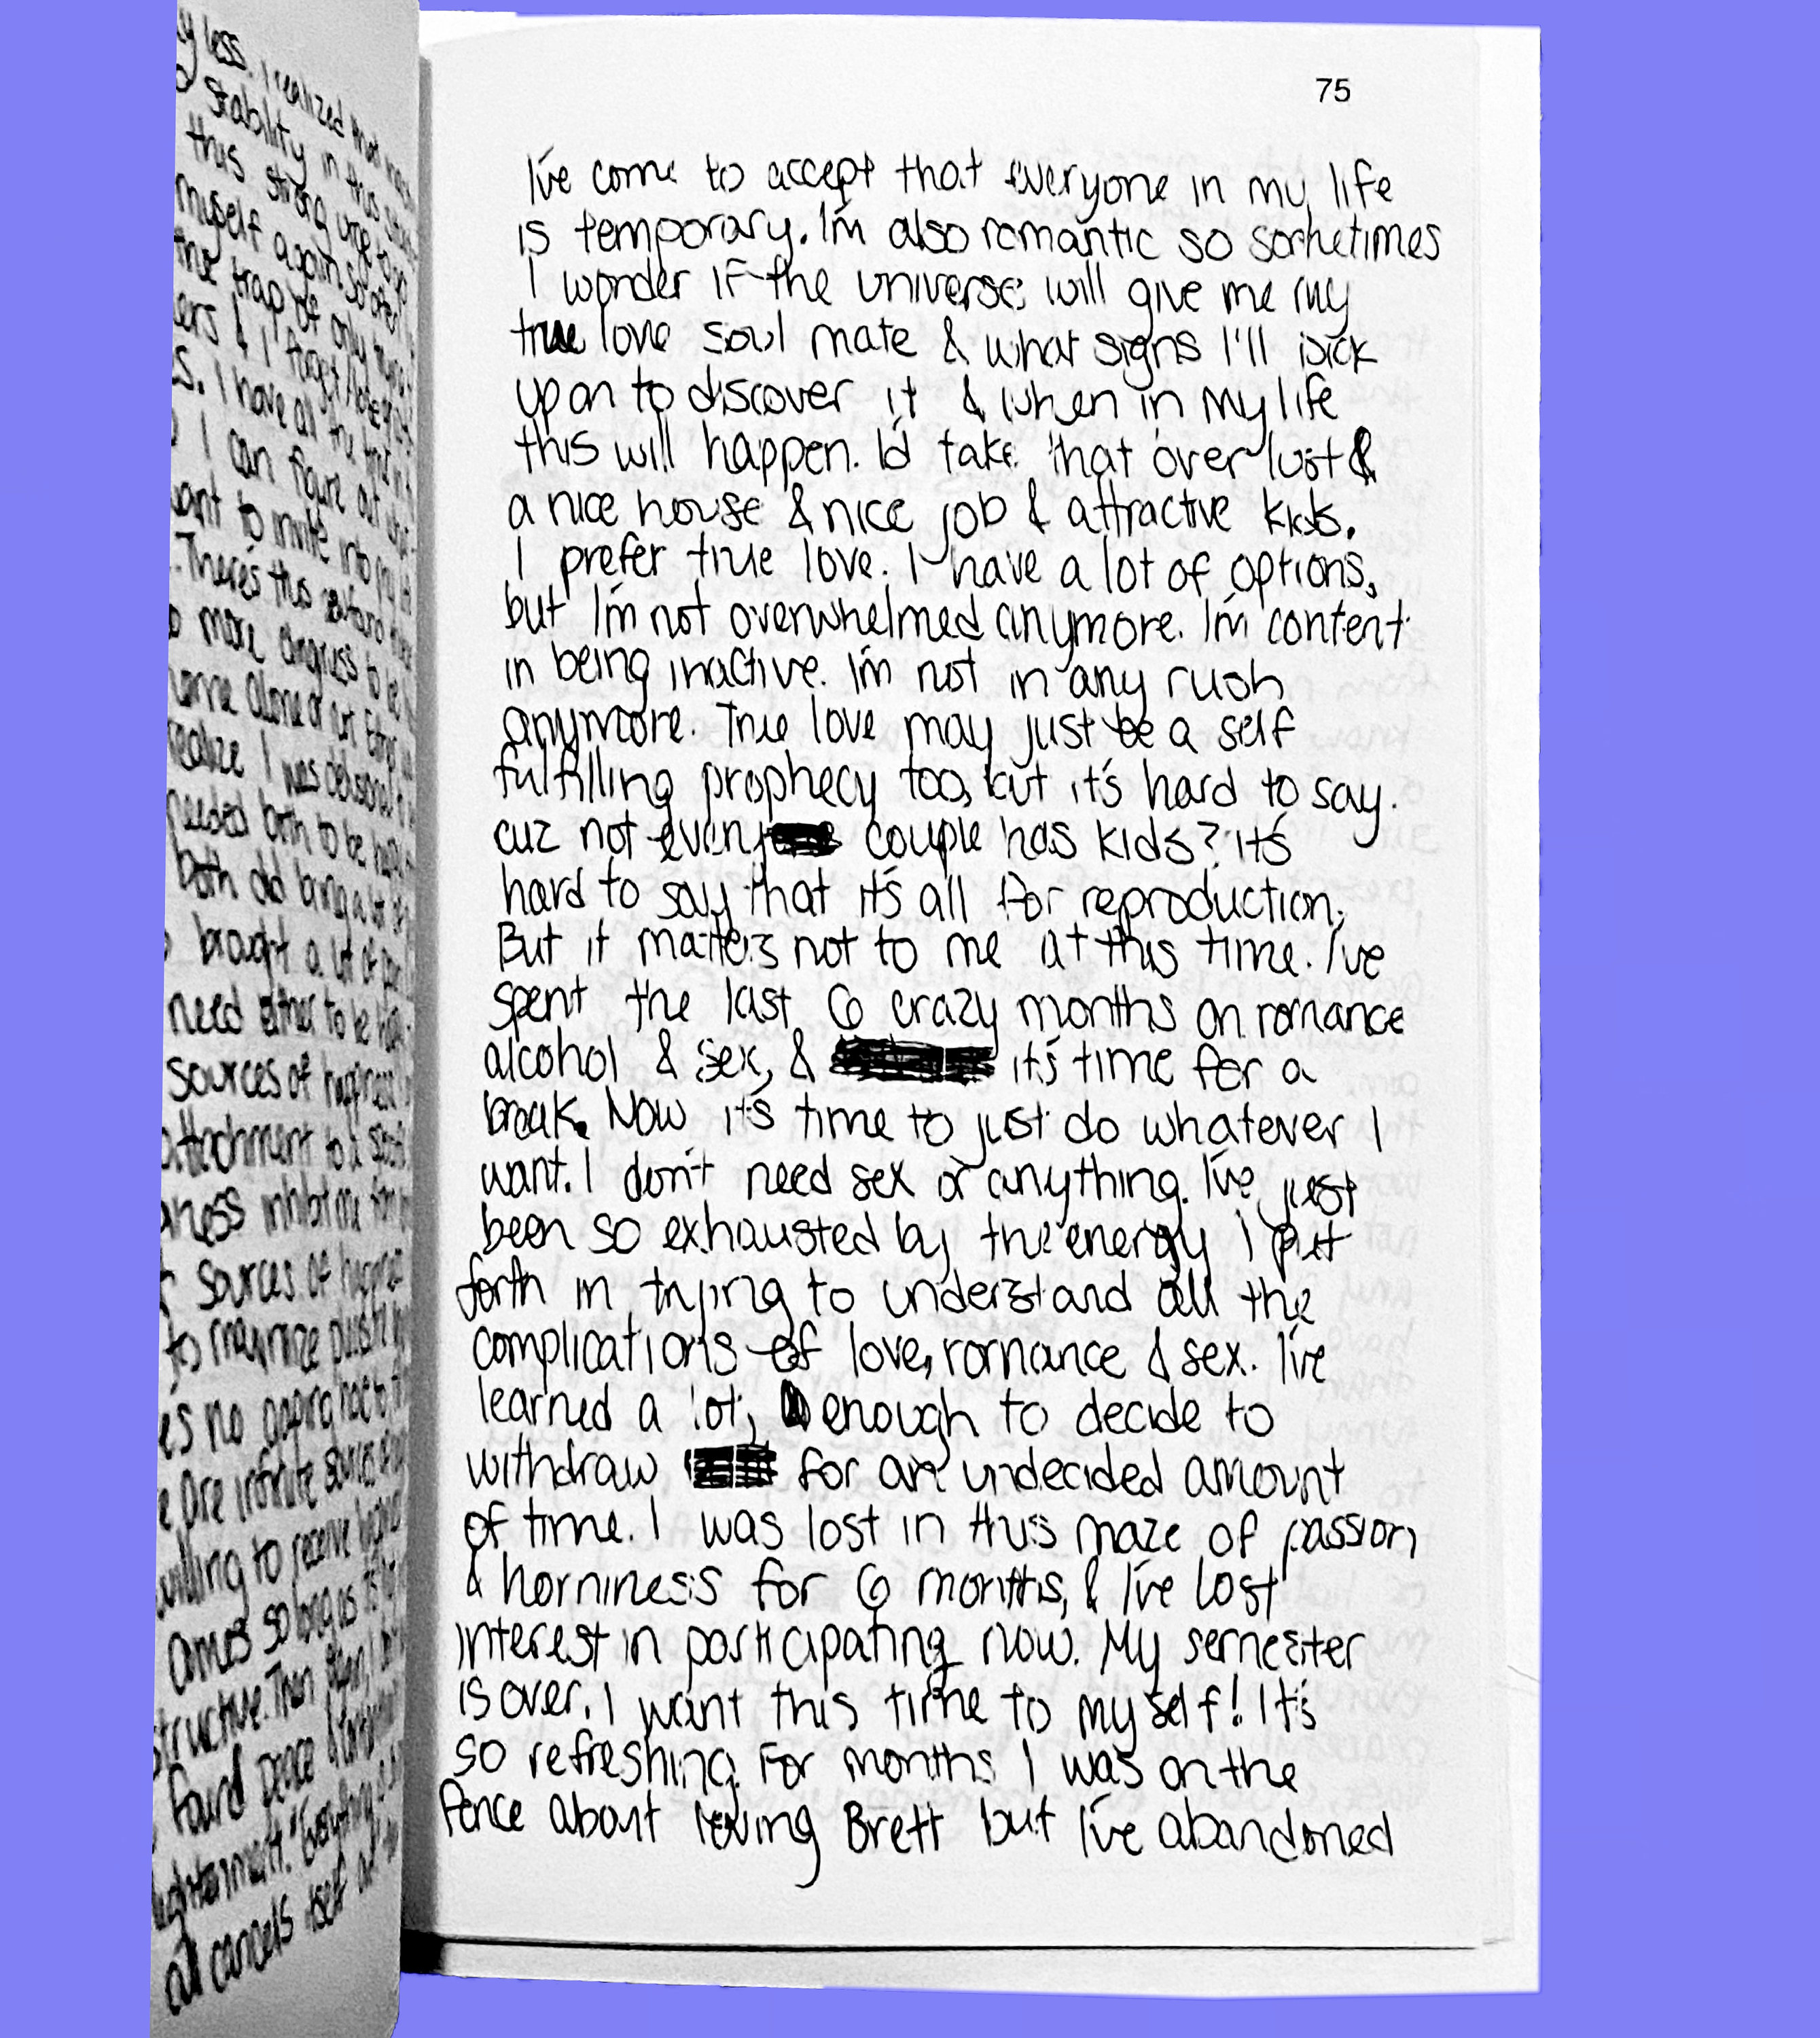 y less. I realized that
Stability in this
this strong urge to go
myself again so often
the trap of only
ers & I forget
s. I have all the
I can figure out what
want to invite into my
There's this
more to be
home alone or
realize I was
needed both to be
both did bring a lot of
brought a lot of
need either to be
sources of happiness
attachment to a
inhibit me from
sources of happiness
to maximize
es no
e are infinite sources of
willing to receive
comes so long as
structive. Then
found peace &
"Everything
all cancels itself
75
I've come to accept that everyone in my life
is temporary. I'm also romantic so sometimes
I wonder if the universe will give me my
true love soul mate & what signs I'll pick
upon to discover it & when in my life
this will happen. I'd take that over lust &
a nice house & nice job & attractive kids.
I prefer true love. I have a lot of options,
but I'm not overwhelmed anymore. I'm content
in being inactive. I'm not in any rush
anymore. True love may just be a self
fulfilling prophecy too, but it's hard to say.
cuz not every couple has kids? It's
hard to say that it's all for reproduction.
But it matters not to me at this time. I've
spent the last 6 crazy months on romance
alcohol & sex, & it's time for a
break. Now it's time to just do whatever I
want. I don't need sex or anything. I've just
been so exhausted by the energy I put
forth in trying to understand all the
complications of love, romance & sex. I've
learned a lot, enough to decide to
withdraw for an undecided amount
of time. I was lost in this maze of passion
& horniness for 6 months, & I've lost
interest in participating now. My semester
is over. I want this time to myself! It's
so refreshing. For months I was on the
fence about loving Brett but I've abandoned